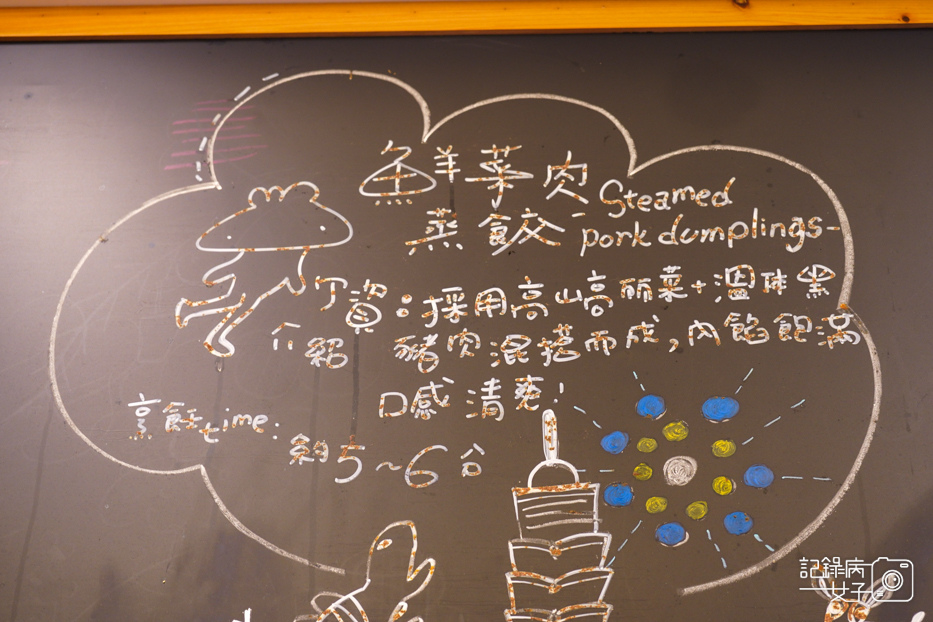 魚羊菜肉
蒸餃 -
Steamed
pork dumplings-
丁資：採用高山高丽菜+溫体黑
介紹 豬肉混搭而成,內餡飽滿
口感清爽!
烹飪time:
約5~6分
記錄病
女子